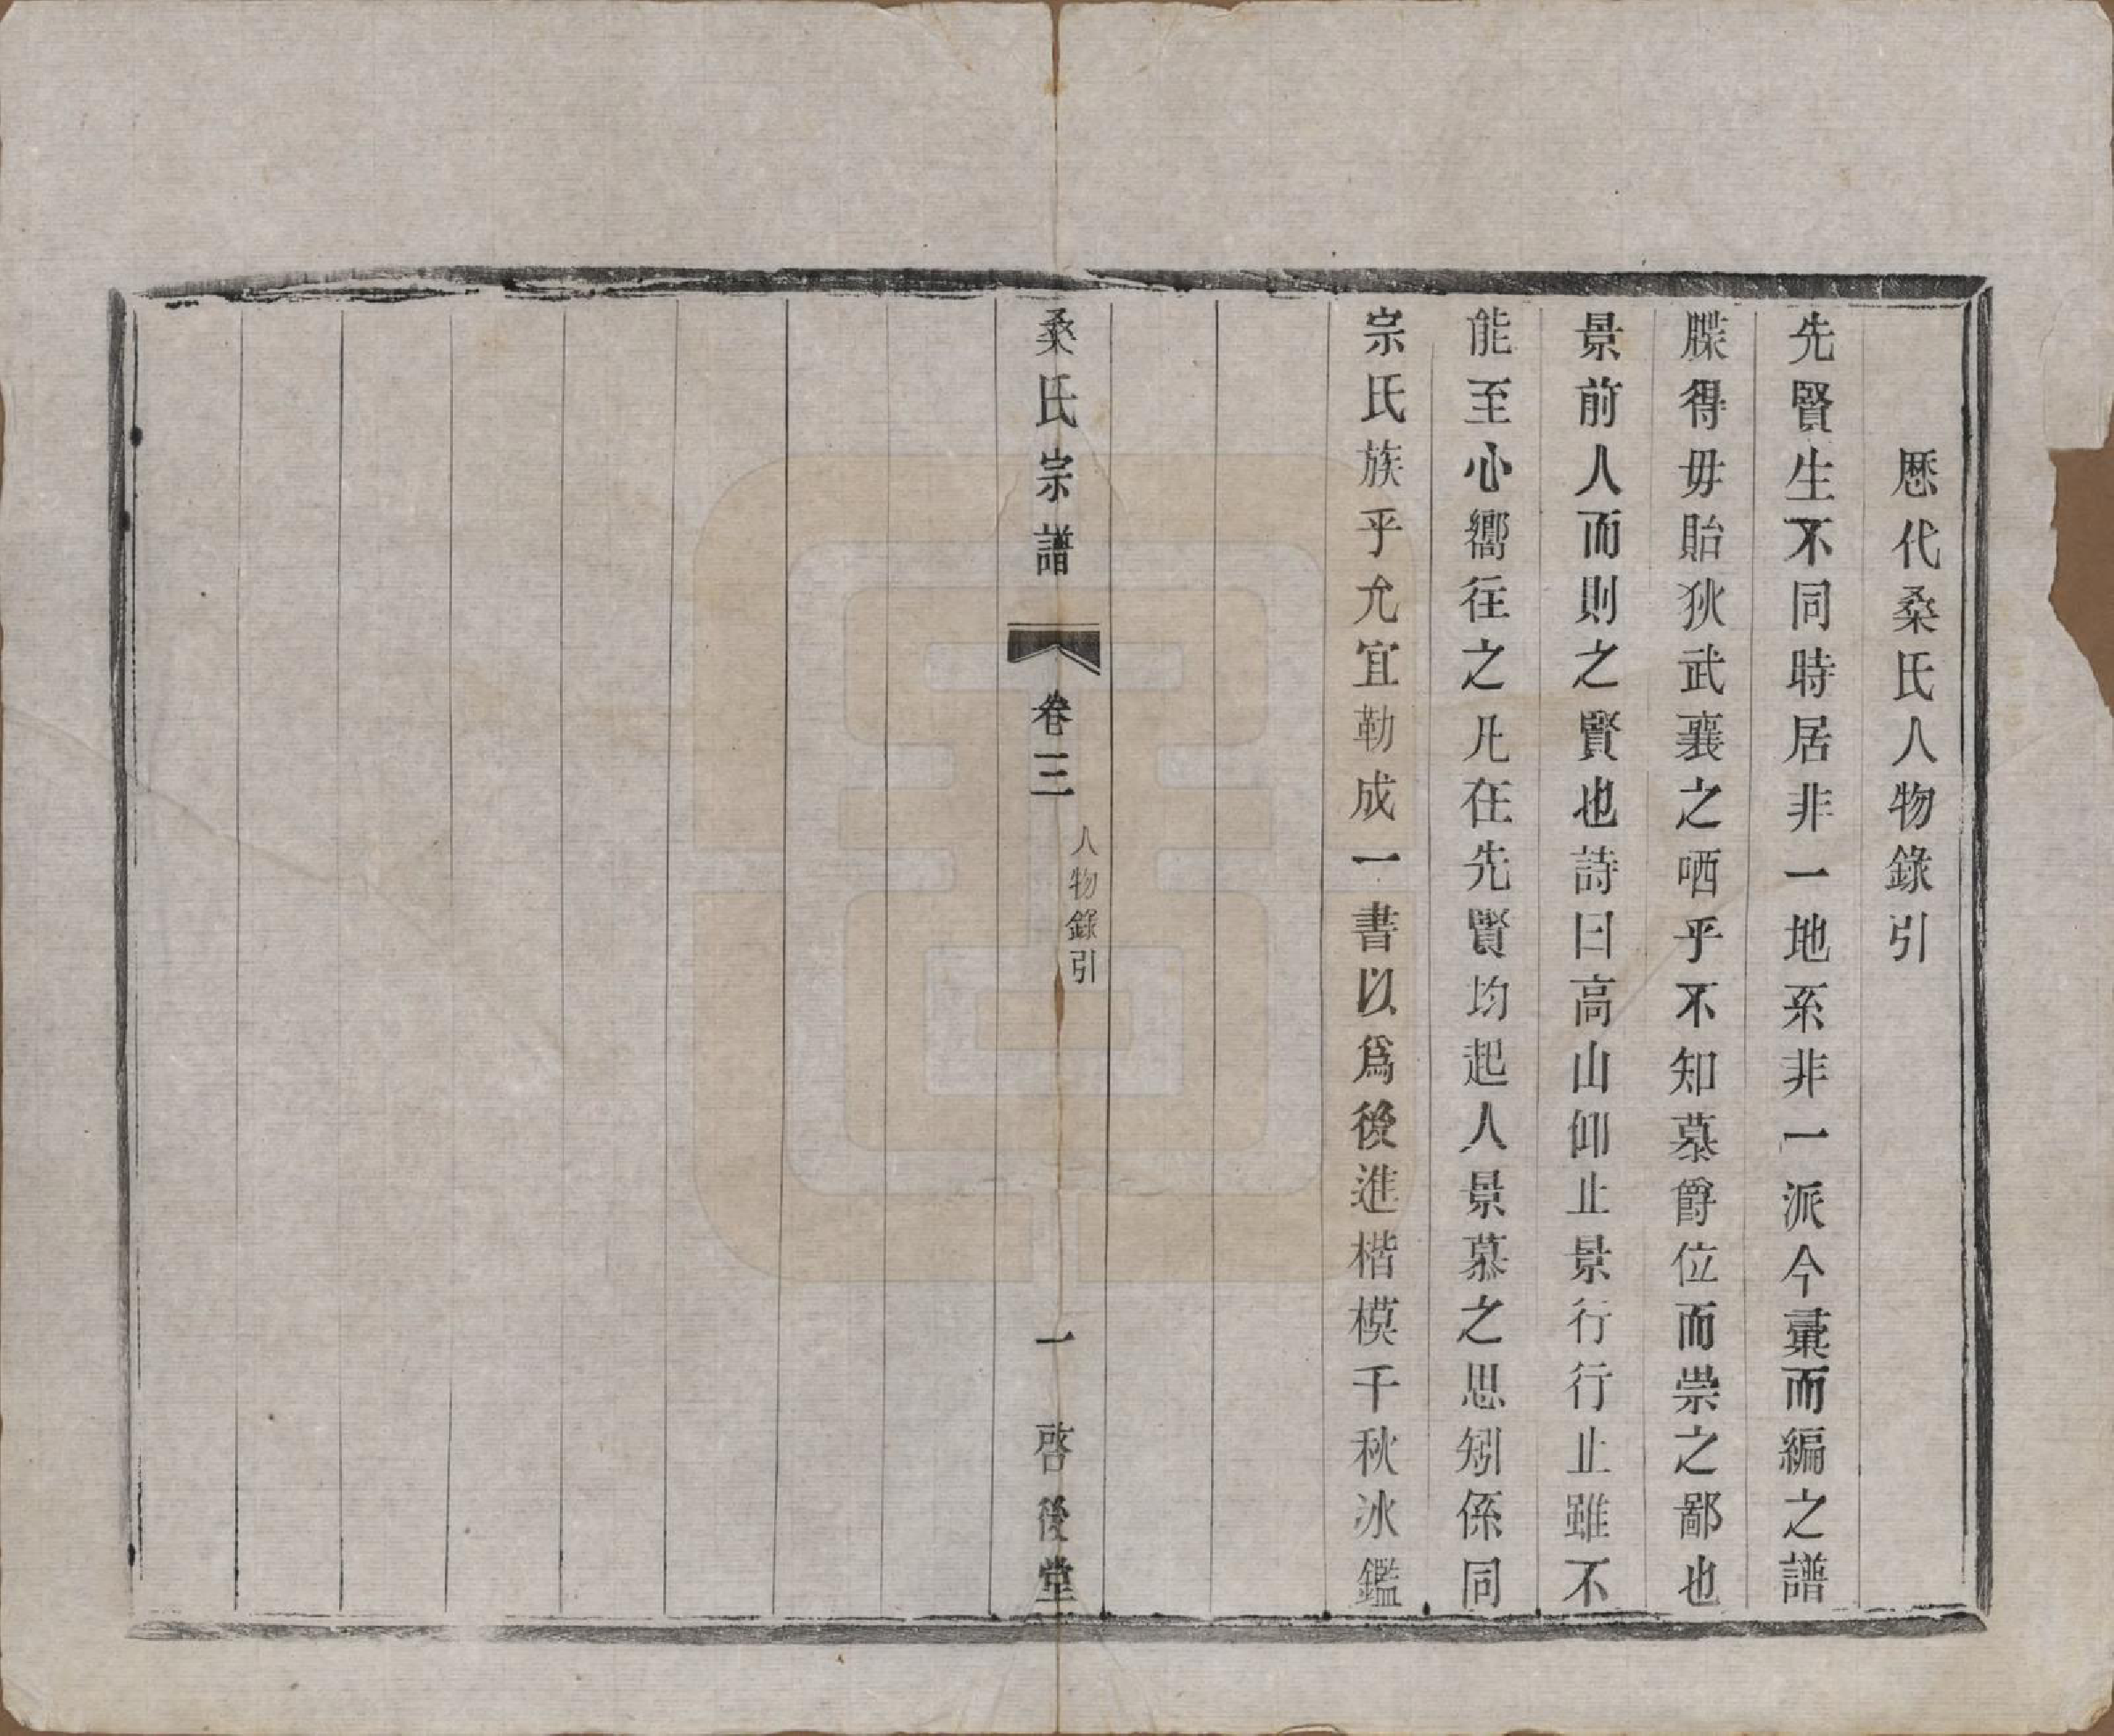 歷代桑氏人物錄引
先賢生不同時居非一地系非一派今彙而編之譜
牒得毋貽狄武襄之哂乎不知慕爵位而崇之鄙也
景前人而則之賢也詩曰高山仰止景行行止雖不
能至心嚮往之凡在先賢均起人景慕之思矧係同
宗氏族乎允宜勒成一書以爲後進楷模千秋冰鑑
桑氏宗譜
卷三
人物錄引
一
啓後堂